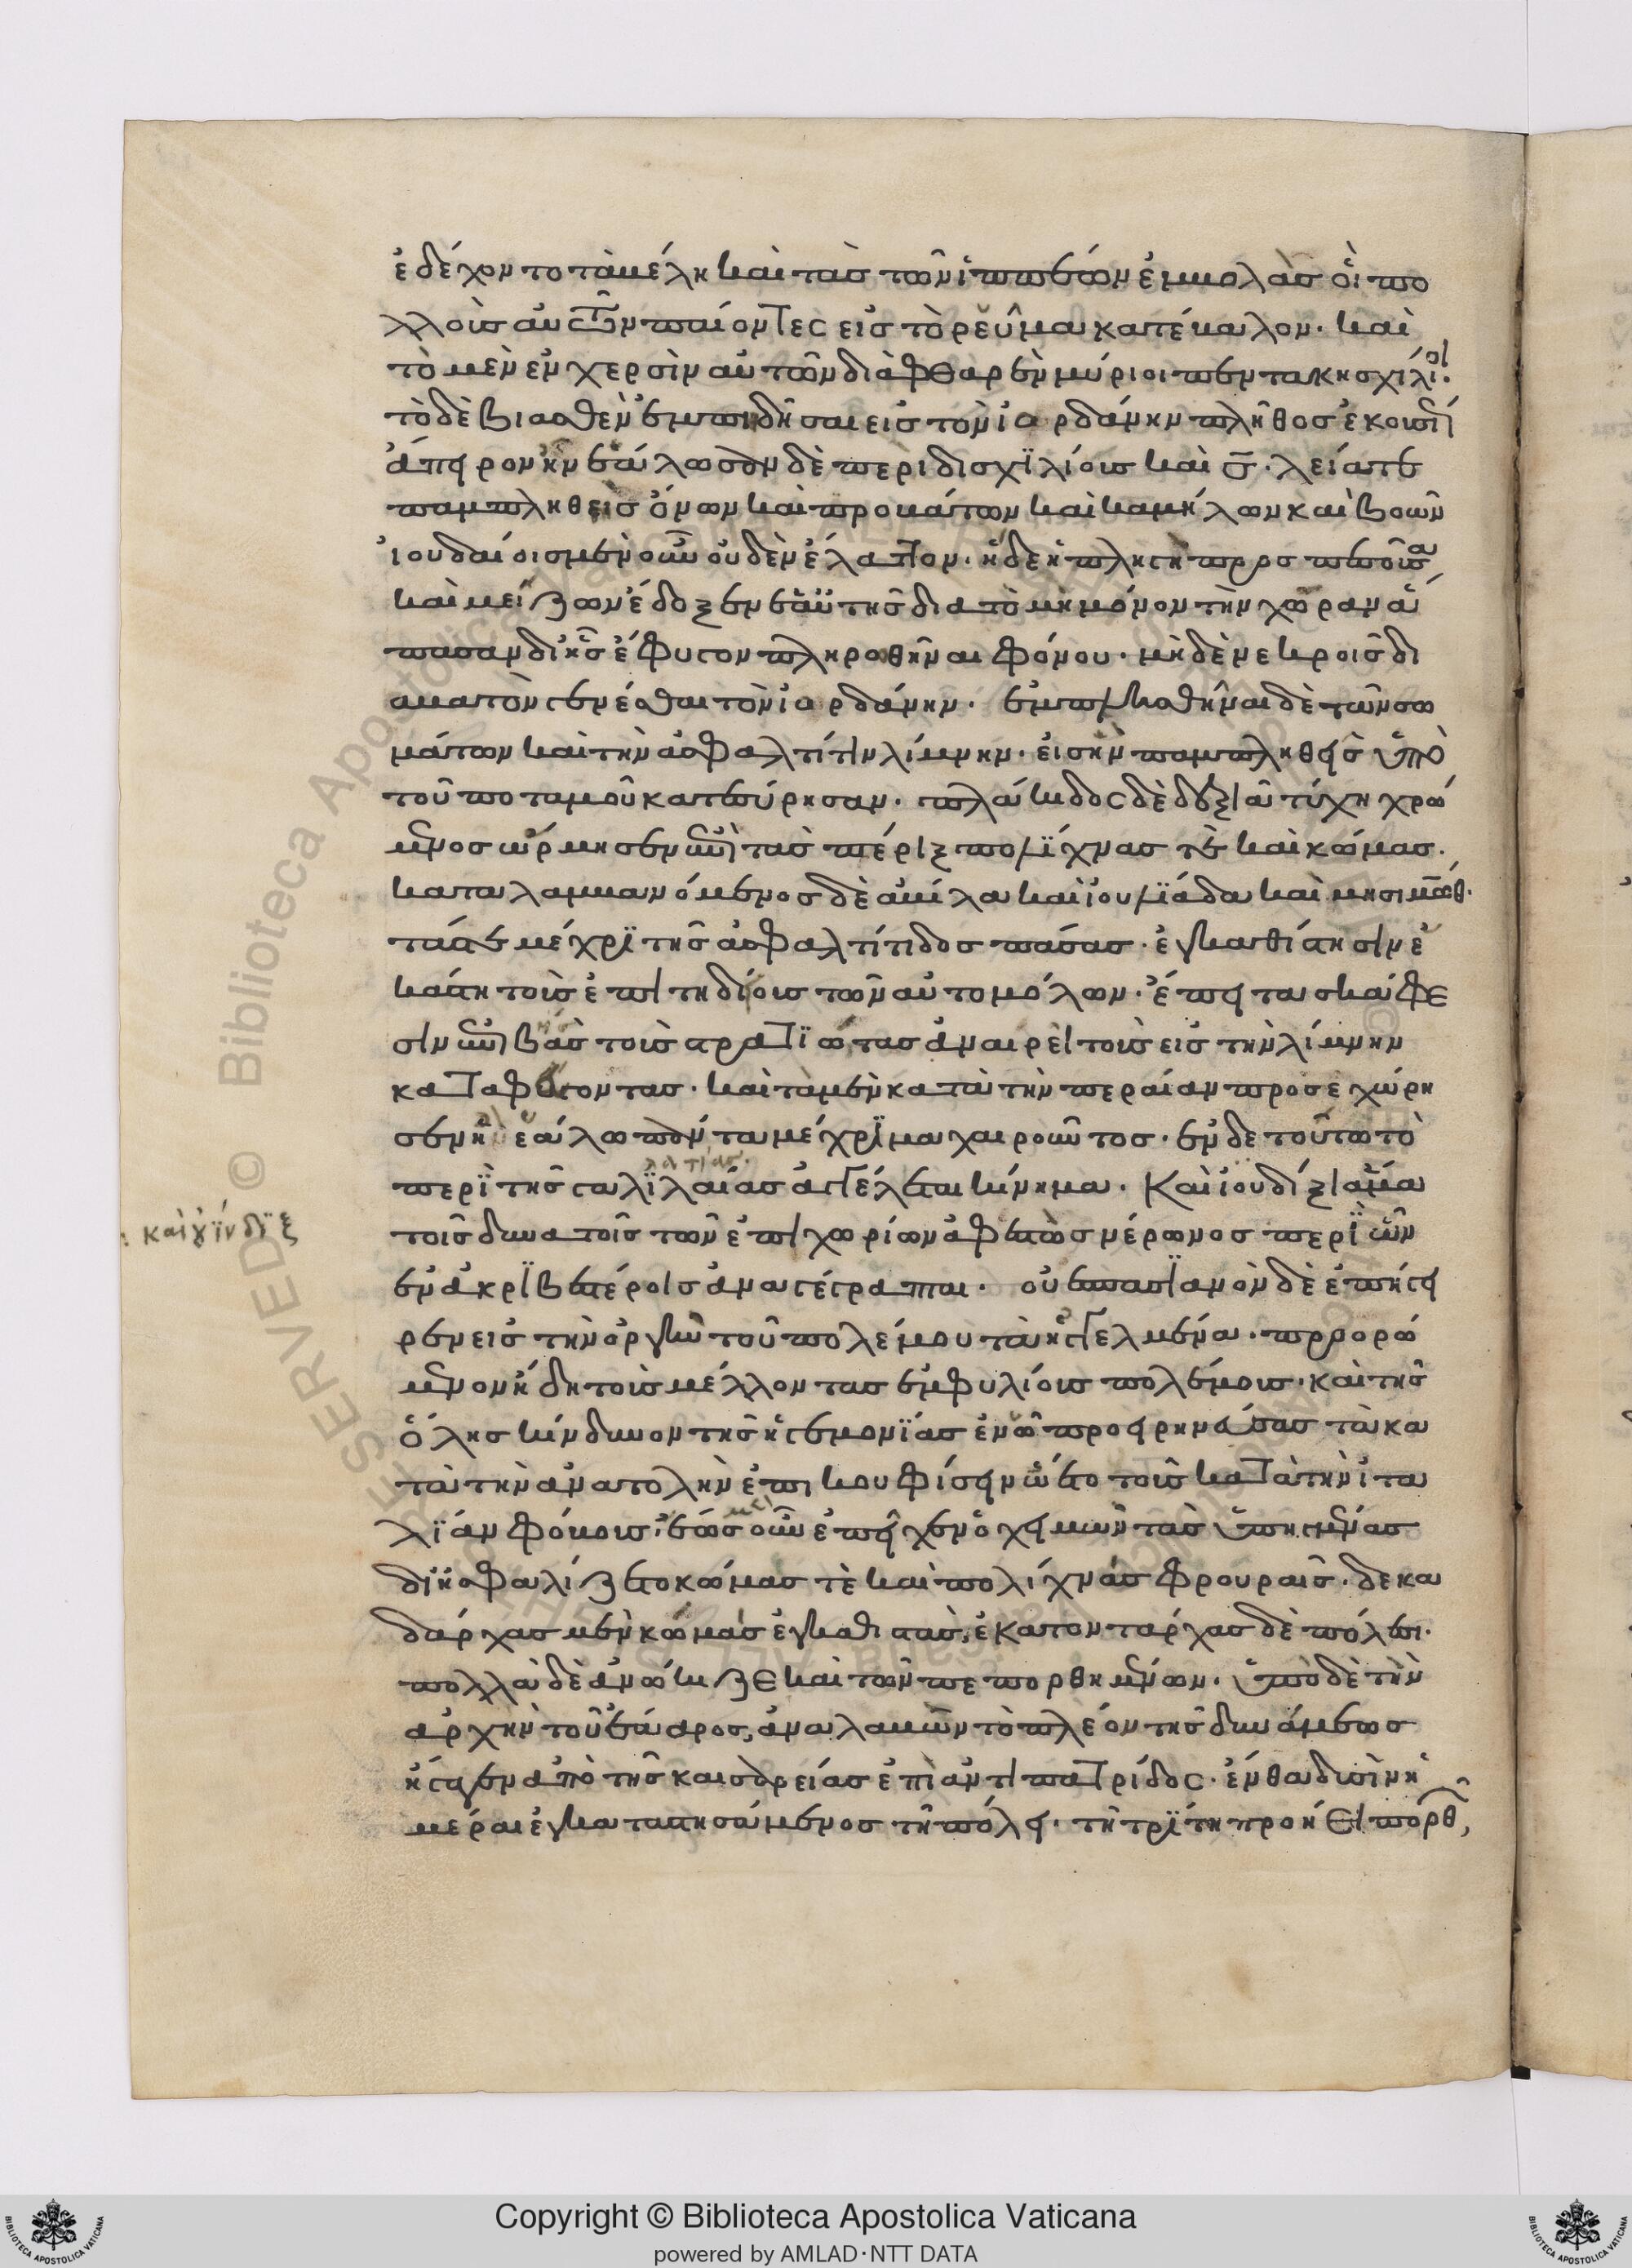 ἐδέχοντο τὰ βέλη καὶ τὰς τῶν ἱππέων ἐμβολὰς οἳ πο
λλοὺς αὐτῶν παίοντες εἰς τὸ ρεῦμα κατέβαλον. καὶ
τὸ μὲν ἐν χερσὶν αὐτῶν διαφθαρὲν μύριοι πεντακισχίλιοι.
τὸ δὲ βιασθὲν ἐμπηδῆσαι εἰς τὸν ἰορδάνην πλῆθος ἑκουσί
ἄπειρον ἦν ἑάλωσαν δὲ περὶ δισχϊλίους καὶ σ. λεία τε
παμπληθεὶς ὄνων καὶ προβάτων καὶ καμήλων καὶ βοῶν
ἰουδαίοις μὲν οὖν οὐδὲν ἔλαττον. ἥδε ἡ πληγὴ προσπεσοῦσα
καὶ μείζων ἔδοξεν ἑαυτῆς διὰ τὸ μὴ μόνον τὴν χώραν ἅ
πασαν δι' ἧς ἔφυγον πληρωθῆναι φόνου. μηδὲ νεκροῖς δι
αβατὸν γενέσθαι τὸν ἰορδάνην. ἐμπλησθῆναι δὲ τῶν σω
μάτων καὶ τὴν ἀσφαλτίτιν λίμνην. εἰς ἣν παμπληθεῖς ὑπὸ
τοῦ ποταμοῦ κατεσύρησαν. πλάκιδος δὲ δεξιᾶ τύχη χρώ
μενος ὥρμησεν ἐπὶ τὰς πέριξ πολίχνας τὲ καὶ κώμας.
καταλαμβανόμενος δὲ ἄβιλα καὶ ἰουλϊάδα καὶ βησιμώθ.
τάς τε μέχρϊ τῆς ἀσφαλτίτιδος πάσας. ἐγκαθίστησιν ἑ
κάστη τοὺς ἐπιτηδίους τῶν αὐτομόλων. ἔπειτα σκάφε
σιν ἐπιβὰς τοὺς στρατϊώτας ἀναιρεῖ τοὺς εἰς τὴν λίμνην
καταφεύγοντας. καὶ τὰ μὲν κατὰ τὴν περαίαν προσεχώρη
σεν ἢ ἑάλω πάντα μέχρϊ μαχαιροῦντος. ἐν δὲ τούτω τὸ
περὶ τῆς γαλϊλαίας ἀγγέλεται κίνημα. Καὶ ἰουδίξ ἅμα
λατίας.
καὶ γ ΐνδϊξ
τοῖς δυνατοῖς τῶν ἐπιχωρίων ἀφεστὼς νέρωνος περὶ ὧν
ἐν ἀκρϊβεστέροις ἀναγέγραπται. οὐεσπασϊανὸν δὲ ἐπήγει
ρεν εἰς τὴν ὁρμὴν τοῦ πολέμου τὰ ἠγγελμένα. προορώ
μενον ἤδη τοὺς μέλλοντας ἐμφυλίους πολέμους. καὶ τῆς
ὅλης κίνδυνον τῆς ἡγεμονϊας ἐν ῷ προειρηνεύσας τὰ κα
τὰ τὴν ἀνατολὴν ἐπικουφίσειν ὤετο τοὺς κατὰ τὴν ἰτα
λϊάν φόβους. ἕως μὲν οὖν ἐπεῖχεν ὁ χειμὼν τὰς ὑπηγμένας
διησφαλίζετο κώμας τὲ καὶ πολίχνας φρουραῖς. δεκα
δάρχας μὲν κώμαις ἐγκαθιστὰς, ἑκατοντάρχας δὲ πόλεσι.
πολλὰ δὲ ἀνώκιζε καὶ τῶν πεπορθημένων. ὑπὸ δὲ τὴν
ἀρχὴν τοῦ ἔαρος, ἀναλαβὼν τὸ πλέον τῆς δυνάμεως
ἤγαγεν ἀπὸ τῆς καισαρείας ἐπὶ ἀντιπατρίδος. ἔνθα δυσὶν ἡ
μέραι ἐγκαταστησάμενος τῆ πόλει. τῆ τρϊτη προήει πορθ